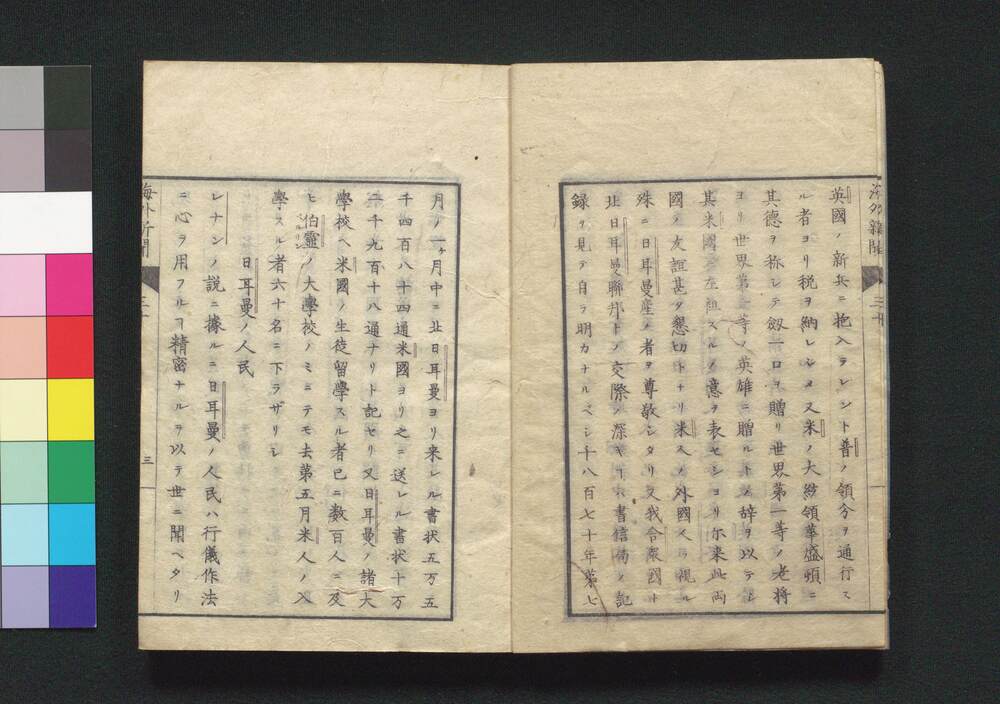 英國ノ新兵ニ抱入ラレント普ノ領分ヲ通行ス
ル者ヨリ税ヲ納レシメ又米ノ大統領華盛頓ニ
其德ヲ称シテ劔一口ヲ贈リ世界第一等ノ老将
ヨリ世界第一等ノ英雄ニ贈ルトノ辞ヲ以テシ
其米國ニ左祖スルノ意ヲ表セシヨリ尓来此両
國ノ友誼甚タ懇切トナリ米人ノ外國人ヲ視ル
殊ニ日耳曼産ノ者ヲ尊敬シタリ又我合衆國ト
北日耳曼聯邦トノ交際ノ深キハ書信局ノ記
録ヲ見テ自ラ明カナルベシ千八百七十年第七
月ノ一ヶ月中ニ北日耳曼ヨリ来レル書状五万五
千四百八十四通米國ヨリ之ニ送レル書状十万
千九百十八通ナリト記セリ又日耳曼ノ諸大
學校ヘ米國ノ生徒留學スル者已ニ数百人ニ及
ヒ伯靈ノ大學校ノミニテモ去第五月米人ノ入
學スル者六十名ニ下ラザリシ
日耳曼ノ人民
レナンノ説ニ據ルニ日耳曼ノ人民ハ行儀作法
ニ心ヲ用フルヿ精密ナルヲ以テ世ニ聞ヘタリ
海外新聞
三